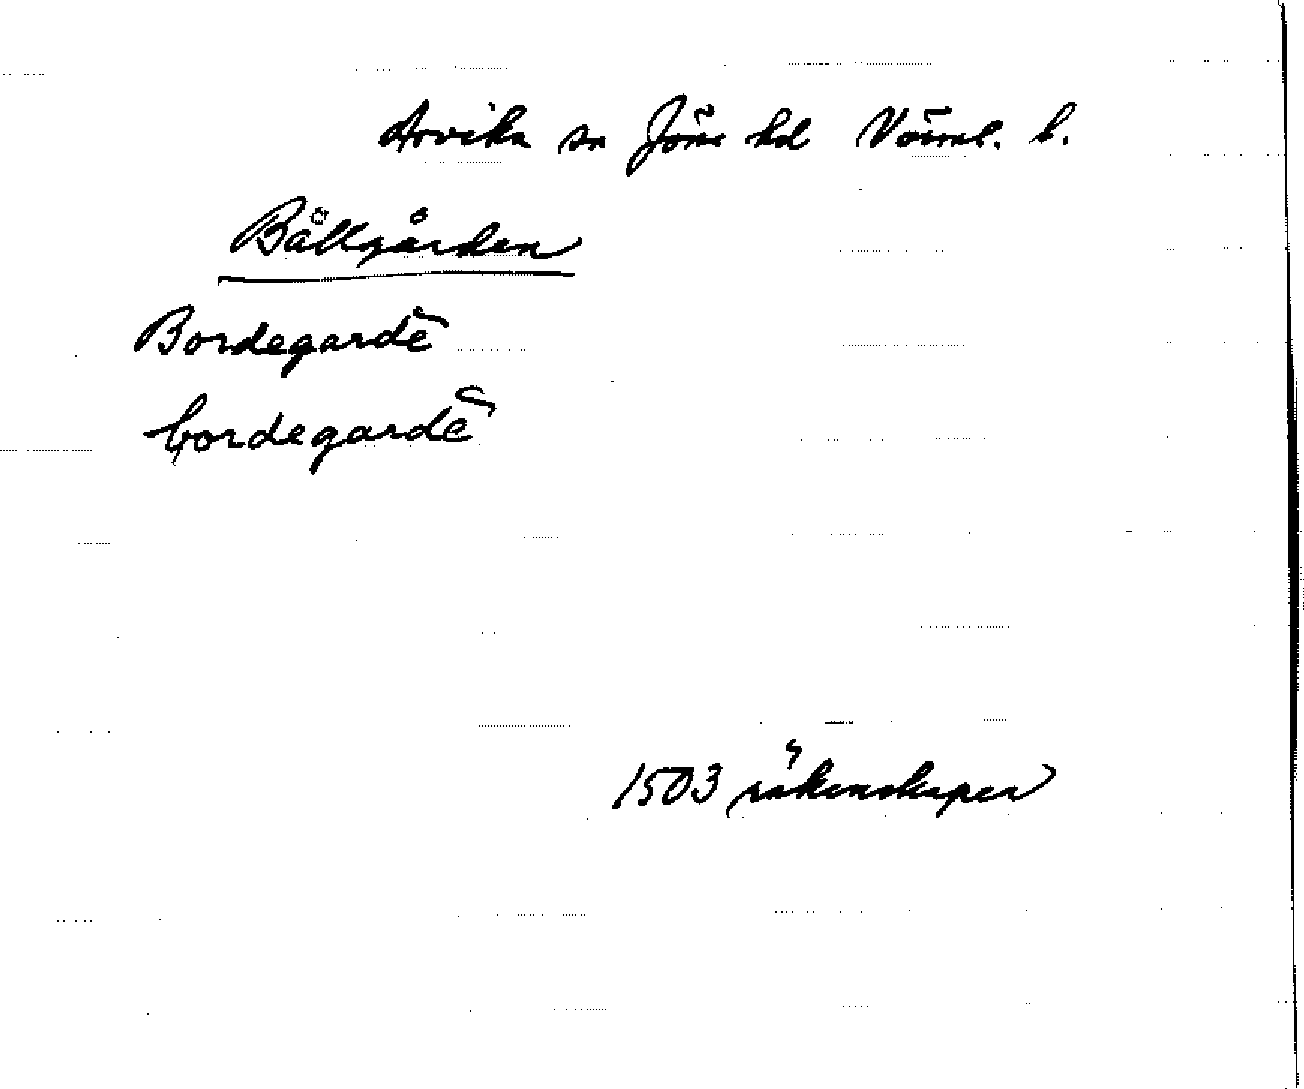 Arvika sn Jöss hd Värml. l.
Bällgården
Bordegardē
Cordegardē
1503 räkenskaper